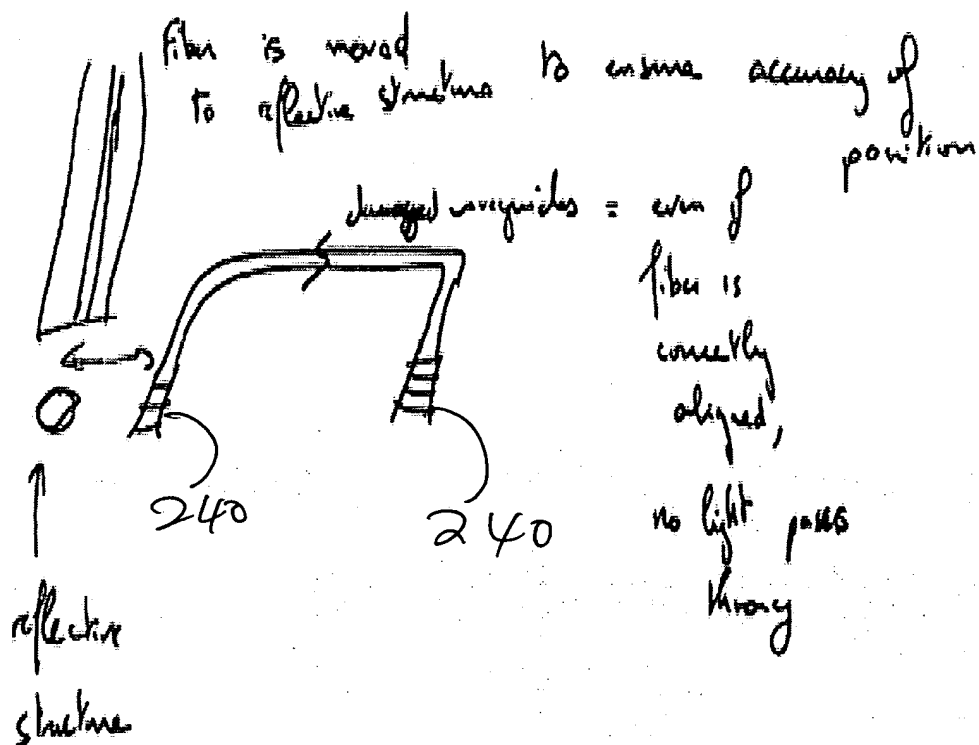 fiber is moved
to reflective structure to ensure accuracy of
position
damaged waveguides = even if
fiber is
correctly
aligned,
no light passes
throug
240
240
reflective
structure